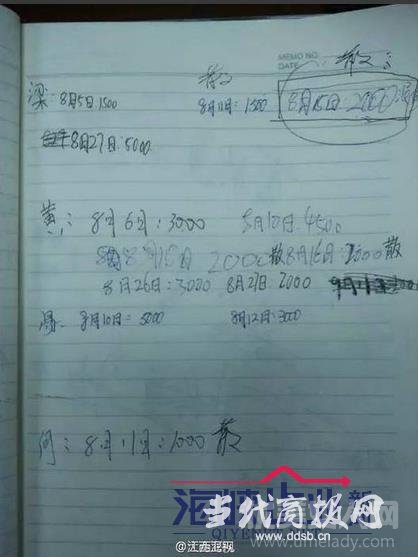 MEMO NO.
DATE
梁:8月5日1500
散
8月11日:1500
8月15日:2000
8月27日:5000
黄:8月6日:3000
8月10日:4500
8月15日 2000散 8月16日:2000散
8月26日:3000 8月27日:2000
8月10日:5000 8月12日:3000
何:8月11日:1000 散
当代商报网
www.ddsb.cn
www.umelady.com
@江西程视